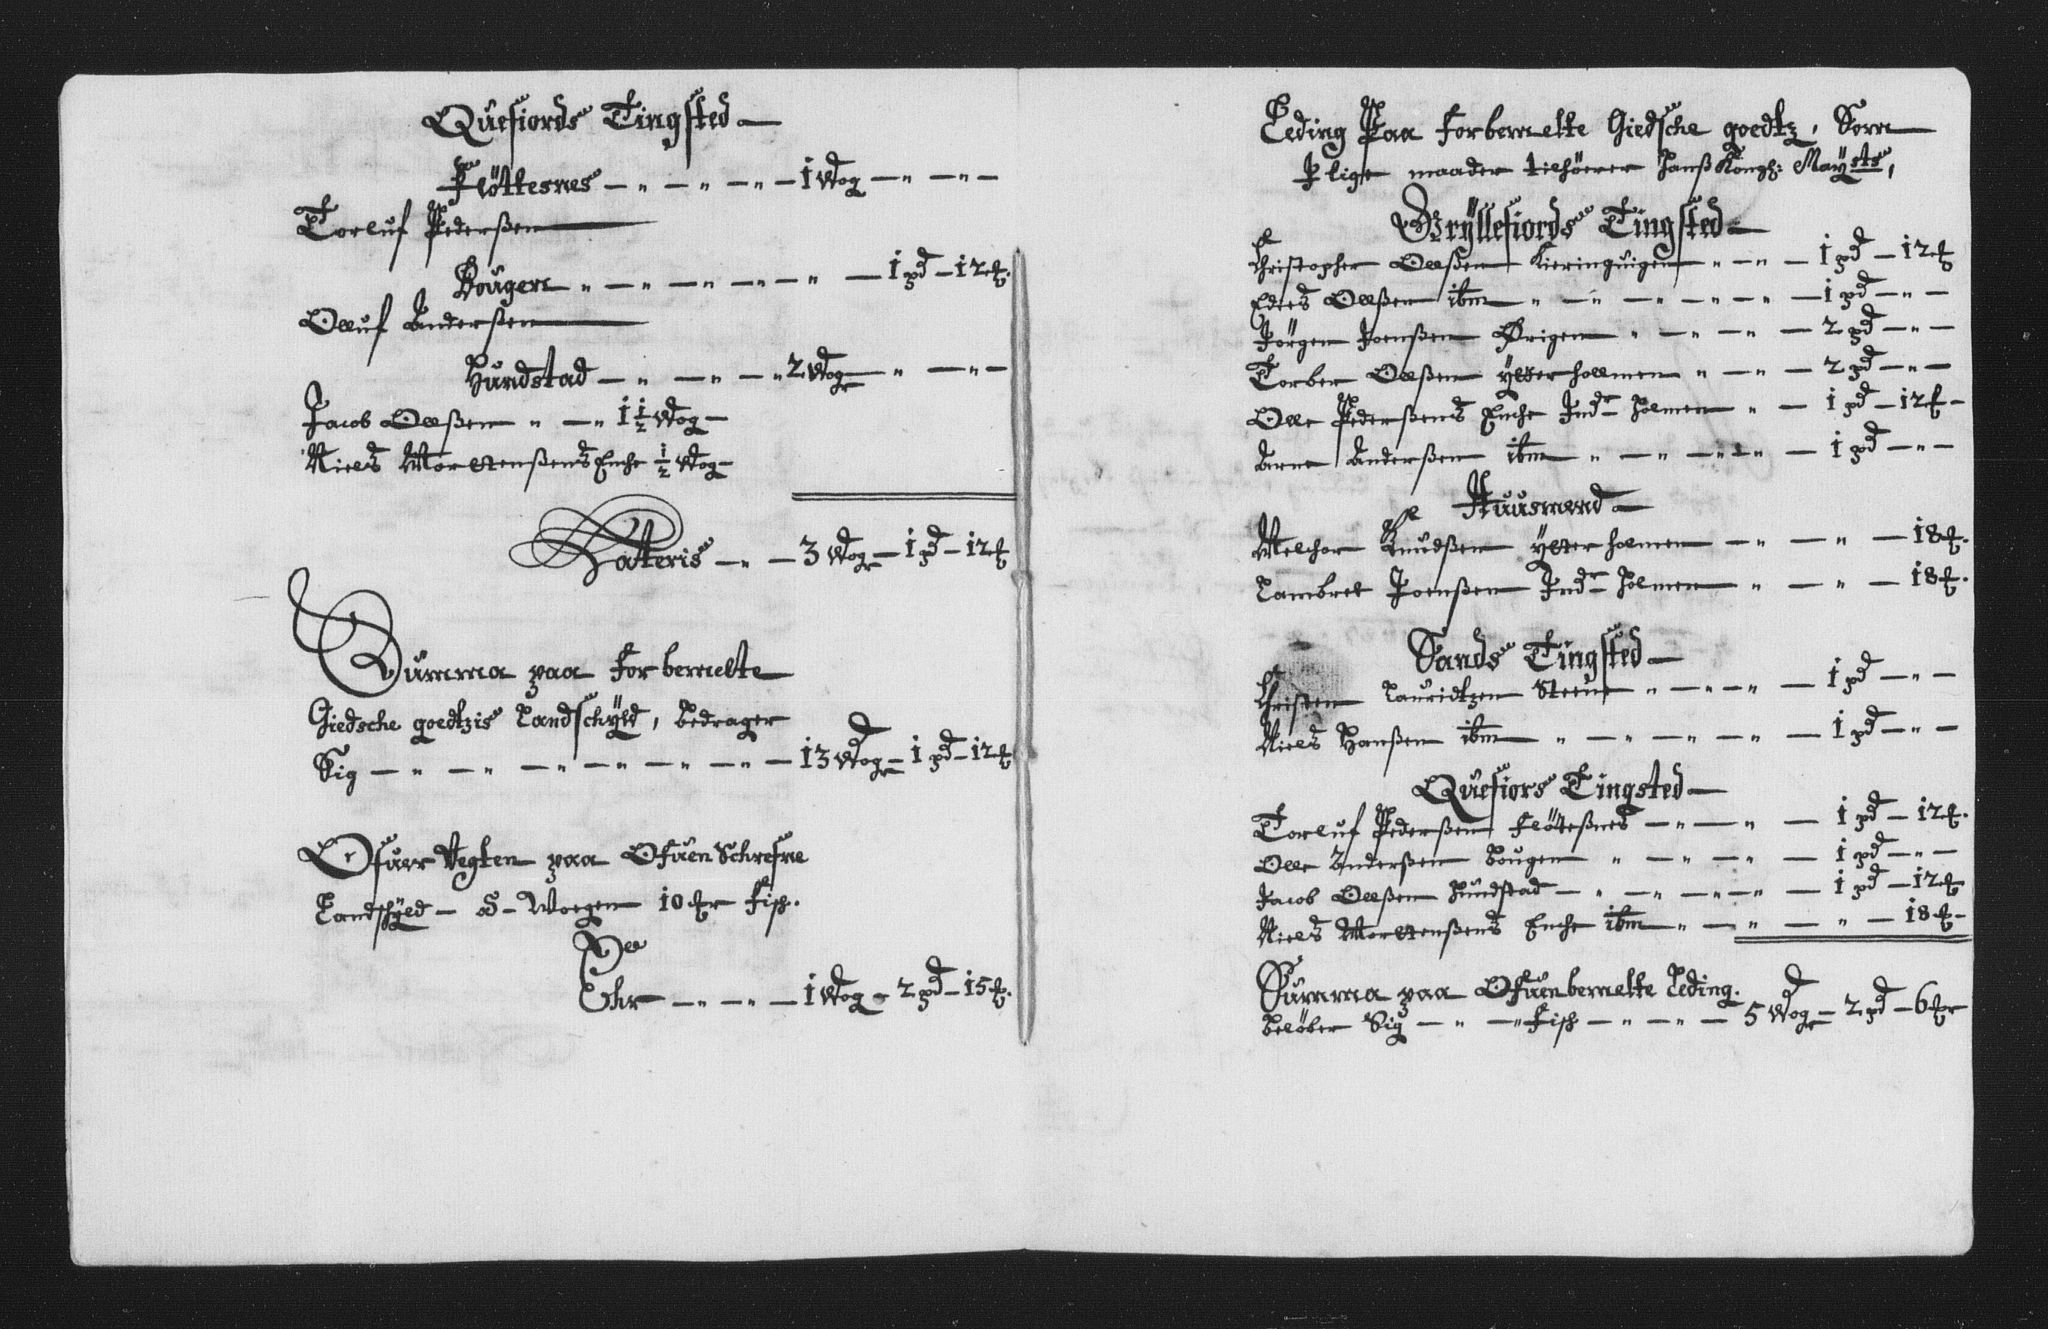 Quefiords Tingsted
Fløttesnes 1 Wog
Torluf Pedersen
Bougen 1 pd 12 ℔
Olluf Andersen
Hundstad 2 Wog
Jacob Ollßen 1 1/2 Wog
Niels Mortenßens Enche 1/2 Wog
Latteris 3 Wog 1 pd 12 ℔
Summa paa forbemelte
Giedsche goedtzis Landschyld, bedrager
Sig 13 Wog 1 pd 12 ℔
Ofuer Vegten paa Ofuen Schrefne
Landschyld à Woegen 10 ℔r fisch.
Ehr 1 Wog 2 pd 15 ℔.
Leding Paa forbemelte Giedsche goedtz, Som
lige maader tilhøerer Hanß Kongl: Maÿsts,
Grÿllefiords Tingsted
Christopher Ollßen Kieringuigen 1 pd 12 ℔
Edies Ollßen ibm 1 pd
Jørgen Joenßen Ørigen 2 pd
Torber Ollßen ytterhollmen 2 pd
Olle Pederßens Enche Indr Holmen 1 pd 12 ℔
Arne Anderßen ibm 1 pd
Huusmend
Melchor Knudßen ytter holmen 18 ℔.
Lambret Joenßen Indr Holmen 18 ℔.
Sands Tingsted
Christen Lauridtzen Steene 1 pd
Niels Hanßen ibm 1 pd
Quefiors Tingsted
Torluf Pederßen Fløtteßnes 1 pd 12 ℔.
Olle Anderßen Bougen 1 pd
Jacob Ollßen Hundstad 1 pd 12 ℔
Niels Mortenßens Enche ibm 18 ℔
Summa paa Ofuenbemelte Leding.
beløber Sig fisch 5 Wog 2 pd 6 ℔r